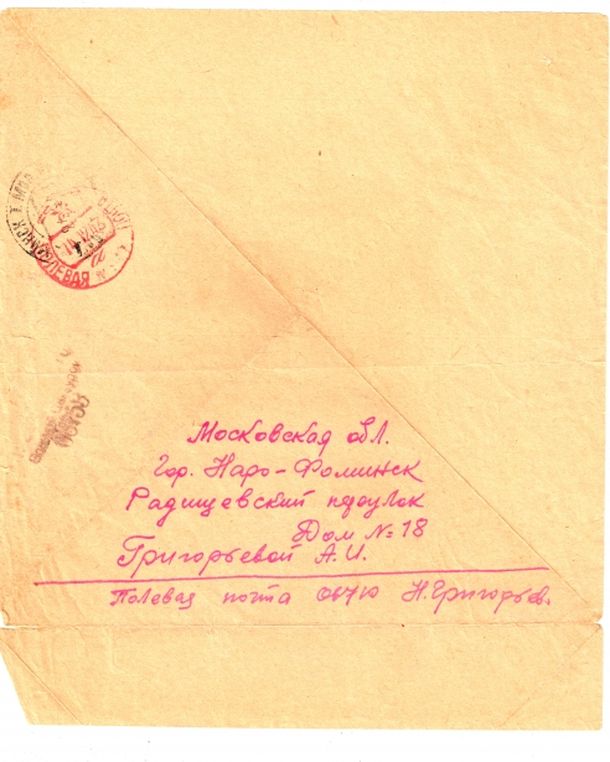 Московская обл.
Гор. Наро-Фоминск
Радищевский переулок
Дом № 18
Григорьевой А.И.
Полевая почта Н. Григорьев.
ПОЛЕВАЯ